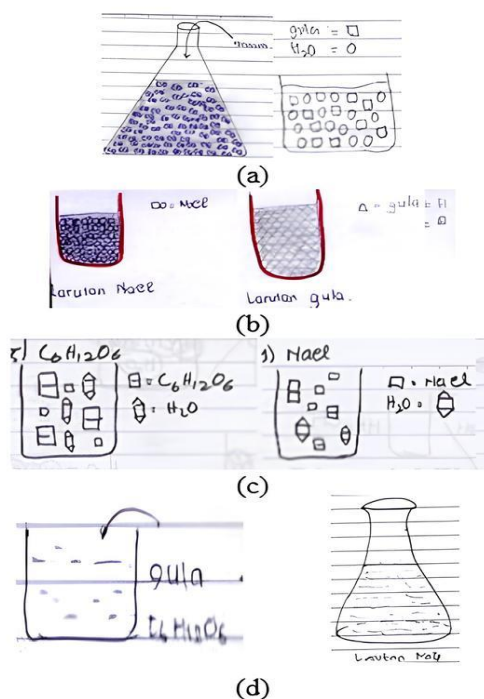 gula = □
H₂O = O
(a)
□○ = NaCl
△ = gula
Larutan NaCl
Larutan gula.
(b)
5) C6H12O6
= C6H12O6
= H2O
1) NaCl
□ = NaCl
H2O =
(c)
gula
C6H12O6
Larutan NaCl
(d)